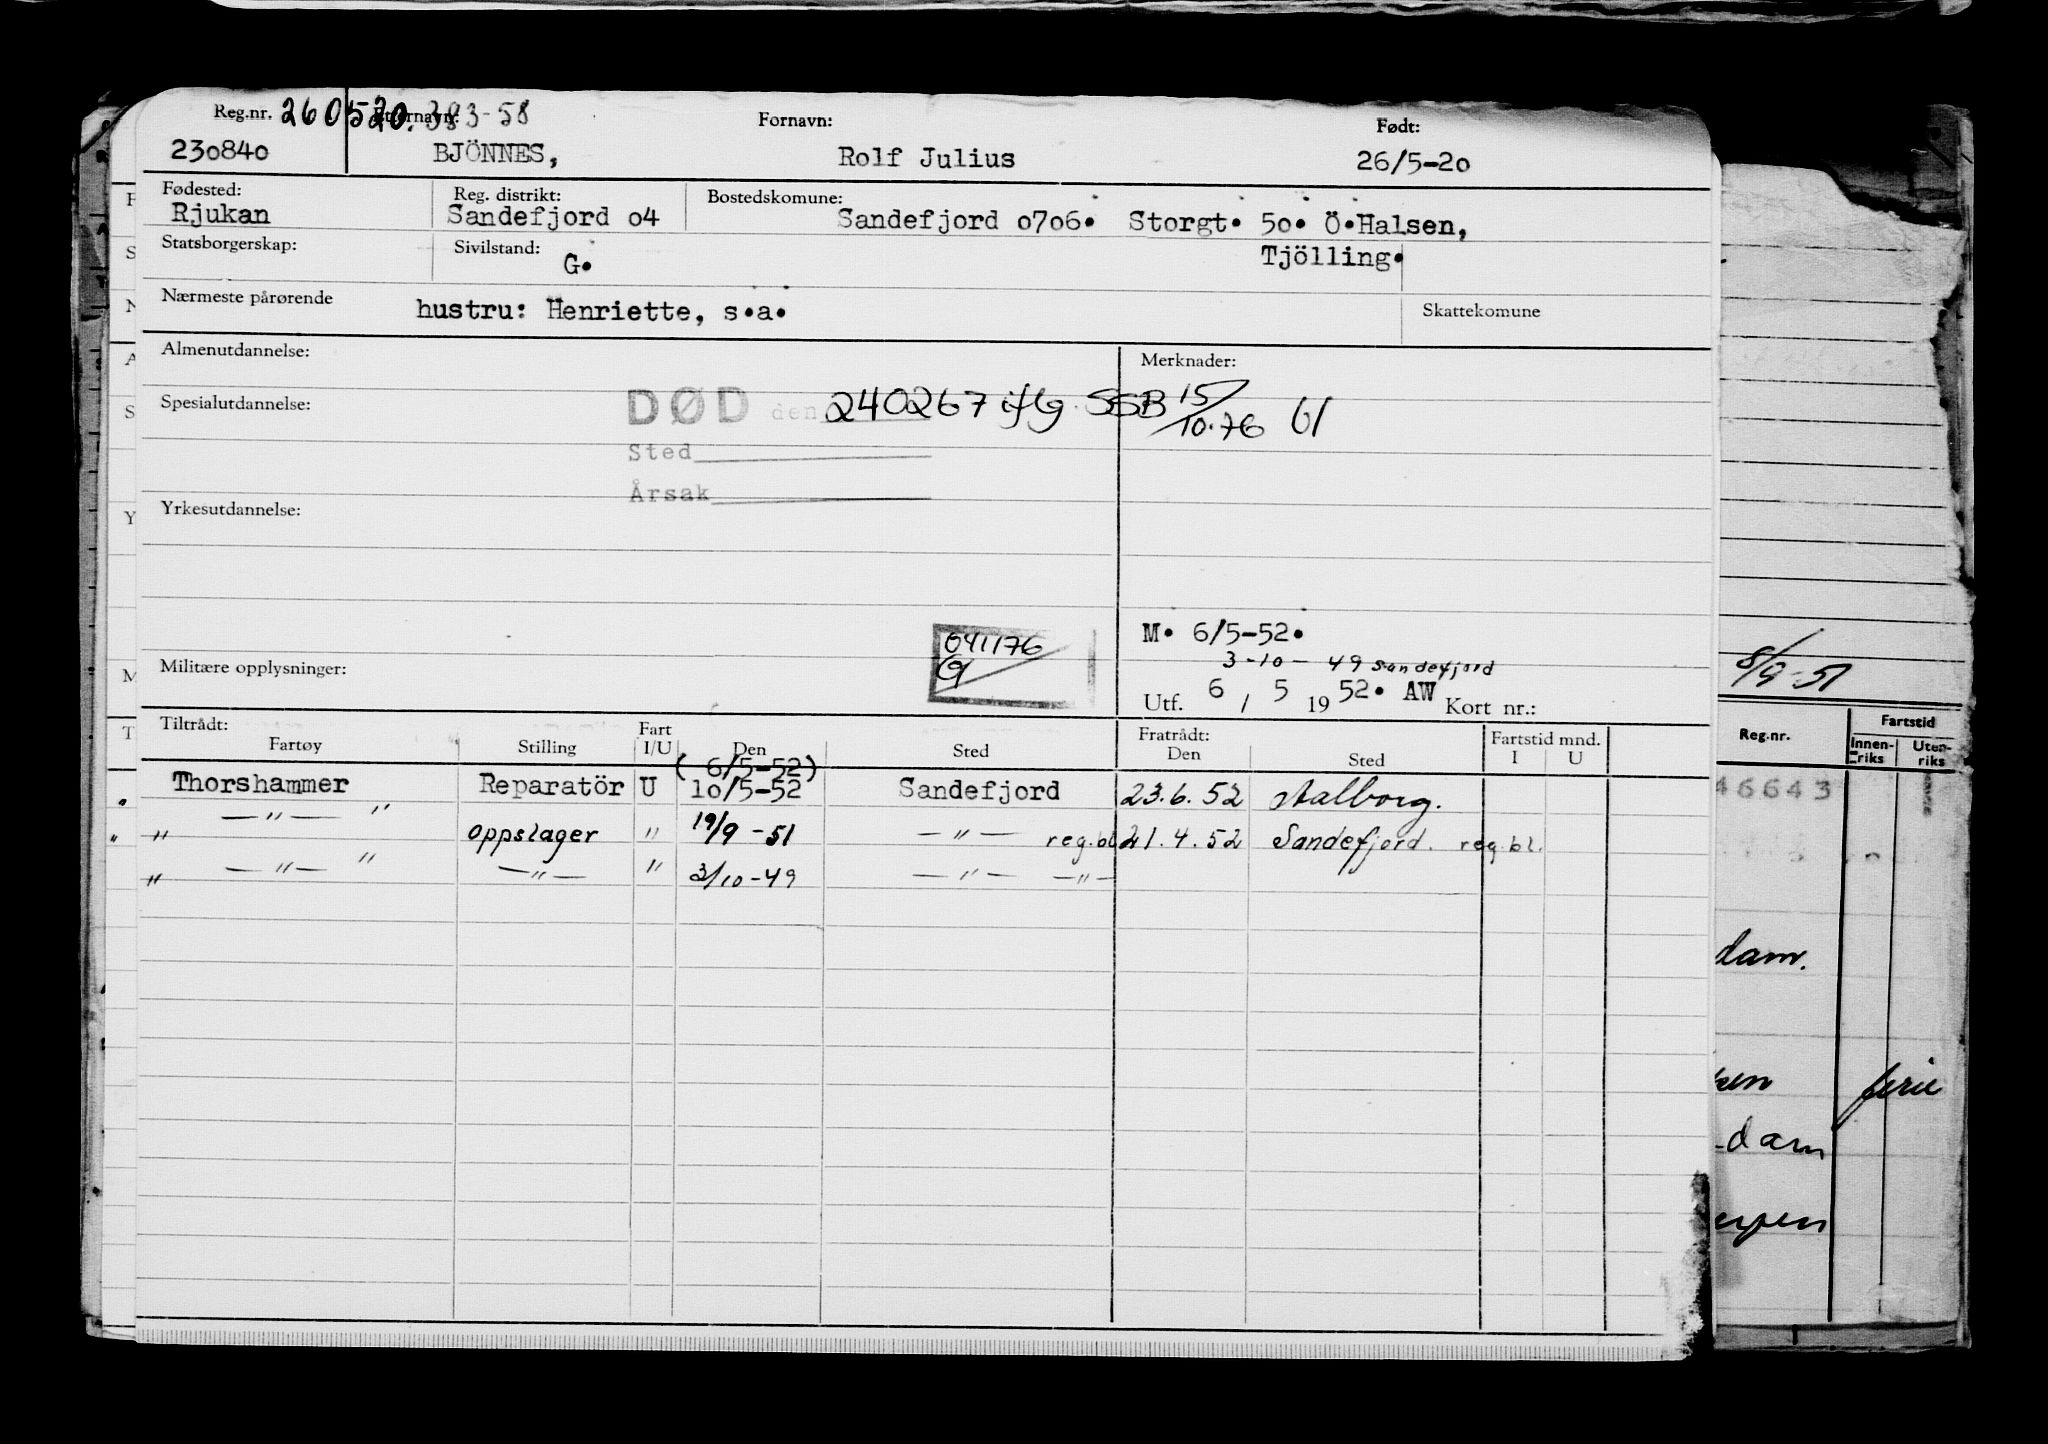 Reg.nr. 260520. 393-58 Etternavn: Fornavn: Født:
230840 BJÖNNES, Rolf Julius 26/5-20
Fødested: Reg. distrikt: Bostedskomune:
Rjukan Sandefjord o4 Sandefjord o7o6. Storgt. 5o. Ö.Halsen,
Statsborgerskap: Sivilstand: G. Tjölling.
Nærmeste pårørende hustru: Henriette, s.a. Skattekomune
Almenutdannelse: Merknader:
Spesialutdannelse: DØD den 240267 ifg. SSB 15/10.76
Sted
Årsak
Yrkesutdannelse:
041176
M. 6/5-52.
3-10-49 Sandefjord
Militære opplysninger:
Utf. 6 / 5 19 52. AW Kort nr.:
Tiltrådt: Fart Fratrådt: Fartstid mnd.
Fartøy Stilling I/U Den Sted Den Sted I U
(6/5-52)
Thorshammer Reparatör U 1o/5-52 Sandefjord 23.6.52 Aalborg.
" —"— " oppslager " 19/9-51 —"— reg.bl 21.4.52 Sandefjord. reg.bl.
" —"— " —"— " 3/10-49 —"— —"—
8/9-51
Reg.nr. Fartstid
Innen-riks Uten-riks
46643
dam.
ferie
dam